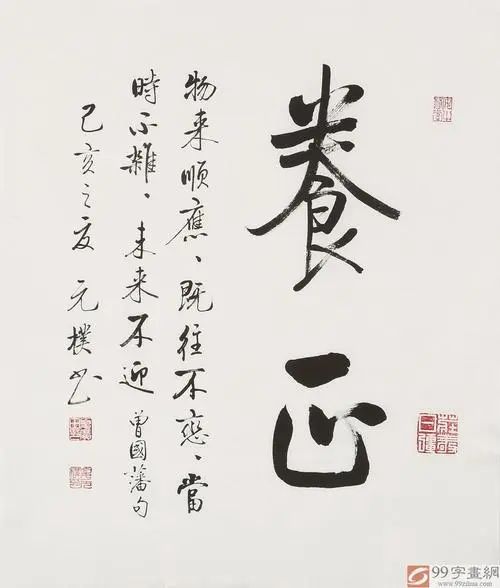 養正
物来順應、既往不戀、當
時不雜、未来不迎 曾國藩句
己亥之夏 元樸书
99字畫網
www.99zihua.com